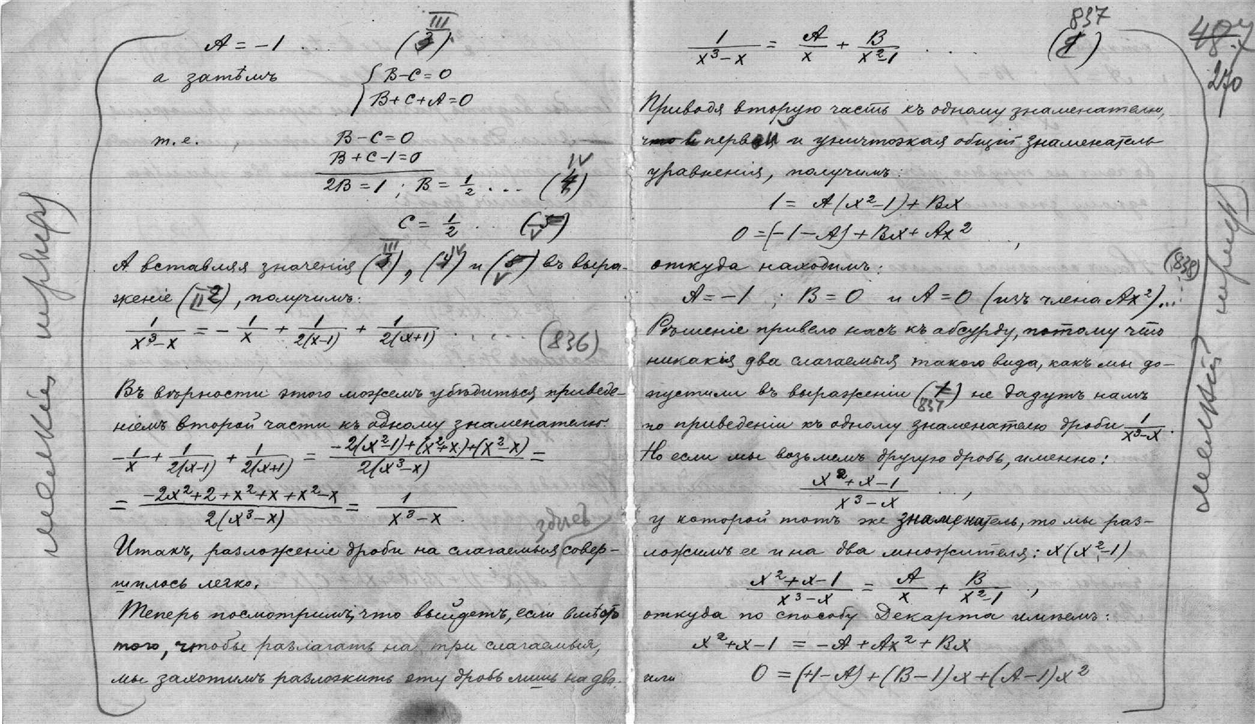 A = −1 . . (III)
а затѣмъ { B − C = 0
B + C + A = 0
т.е. B − C = 0
B + C − 1 = 0
2B = 1 ; B = 1/2 . . . (IV)
C = 1/2 . . (V)
А вставляя значенія (III), (IV) и (V) въ выра-
женіе (II), получимъ:
1/(x³−x) = − 1/x + 1/(2(x−1)) + 1/(2(x+1)) . . . . . (836)
Въ вѣрности этого можемъ убѣдиться приведе-
ніемъ второй части къ одному знаменателю
−1/x + 1/(2(x−1)) + 1/(2(x+1)) = (−2(x²−1)+(x²+x)+(x²−x))/(2(x³−x)) =
= (−2x²+2+x²+x+x²−x)/(2(x³−x)) = 1/(x³−x) .
здѣсь
Итакъ, разложеніе дроби на слагаемыя совер-
шилось легко.
Теперь посмотримъ, что выйдетъ, если вмѣсто
того, чтобы разлагать на три слагаемыя,
мы захотимъ разложить эту дробь лишь на два.
мелкій шрифтъ
837
1/(x³−x) = A/x + B/(x²−1) . . . (1)
487
270
Приводя вторую часть къ одному знаменателю,
что въ первой и уничтожая общій знаменатель
уравненія, получимъ:
1 = A(x²−1) + Bx
0 = (−1−A) + Bx + Ax² ,
откуда находимъ: (838)
A = −1 ; B = 0 и A = 0 (изъ члена Ax²)...
Рѣшеніе привело насъ къ абсурду, потому что
никакія два слагаемыя такого вида, какъ мы до-
пустили въ выраженіи (837) не дадутъ намъ
по приведеніи къ одному знаменателю дроби 1/(x³−x).
Но если мы возьмемъ другую дробь, именно:
(x²+x−1)/(x³−x) . . . ,
у которой тотъ же знаменатель, то мы раз-
ложимъ ее и на два множителя: x(x²−1)
(x²+x−1)/(x³−x) = A/x + B/(x²−1) . ,
откуда по способу Декарта имѣемъ:
x²+x−1 = −A + Ax² + Bx
или 0 = (+1−A) + (B−1)x + (A−1)x²
мелкій шрифтъ